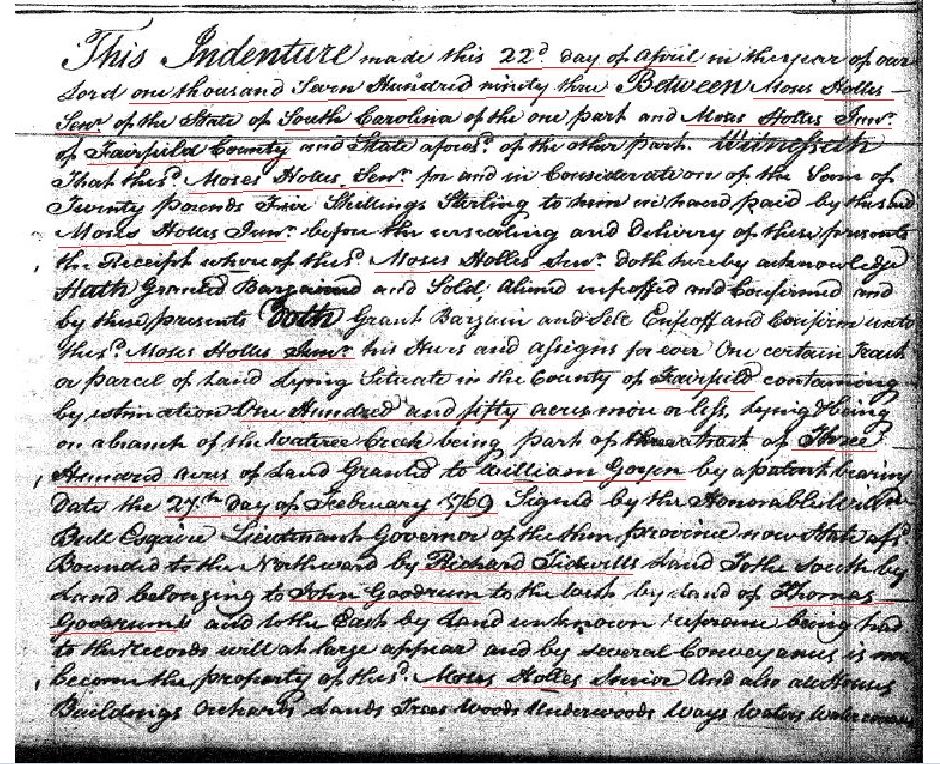 This Indenture made this 22d day of April in the year of our
Lord one thousand Seven Hundred ninety three Between Moses Hollis
Senr. of the State of South Carolina of the one part and Moses Hollis Junr.
of Fairfield County and State aforesd. of the other part. Witnesseth
That the sd. Moses Hollis Senr. for and in Consideration of the Soom of
Twenty pounds Five Shillings Sterling to him in hand paid by the said
Moses Hollis Junr. before the ensealing and Delivery of these presents
the Receipt where of the sd. Moses Hollis Senr. doth hereby acknowledge
Hath Granted Bargained and Sold, aliened infeoffed and Confirmed and
by these presents Doth Grant Bargain and Sell Enfeoff and Confirm unto
the sd. Moses Hollis Junr. his Heirs and assigns for ever One certain Tract
or parcel of Land Lying Situate in the County of Fairfield containing
by estimation One Hundred and fifty acres more or less, lying & being
on a branch of the Wateree Creek being part of three a tract of Three
Hundred acres of Land Granted to William Goyen by a patent bearing
Date the 27th Day of February 1769 Signed by the Honorable
Bull Esquire Lieutenant Governor of the then province now State afsd
Bounded to the Northward by Richard Tidwells Land To the South by
Land belonging to John Goodrum to the by Land of Thomas
Goodrums and to the East by Land unknown reference being had
to the Records will at large appear and by several Conveyances is now
become the property of the sd. Moses Hollis Senior And also all Houses
Buildings Orchards Lands Trees Woods Underwoods Ways Waters Watercourses